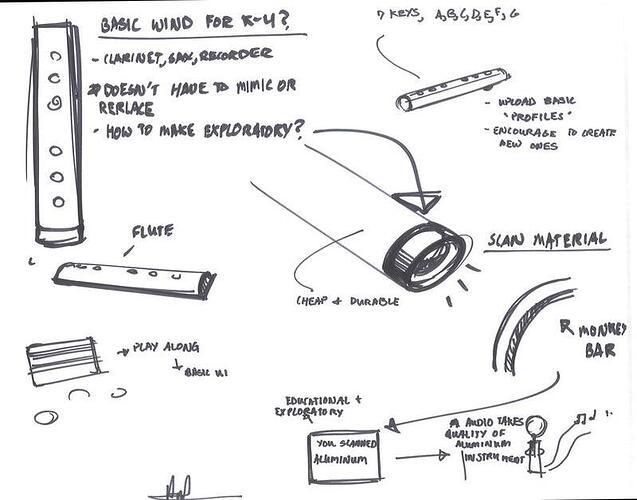 BASIC WIND FOR K-4?
- CLARINET, SAX, RECORDER
* DOESN'T HAVE TO MIMIC OR
REPLACE
- HOW TO MAKE EXPLORATORY?
7 KEYS, A,B,C,D,E,F,G
- UPLOAD BASIC
"PROFILES"
- ENCOURAGE TO CREATE
NEW ONES
FLUTE
SCAN MATERIAL
CHEAP + DURABLE
MONKEY
BAR
→ PLAY ALONG
↳ BASIC UI
EDUCATIONAL +
EXPLORATORY
YOU SCANNED
ALUMINUM
AUDIO TAKES
QUALITY OF
ALUMINIUM
INSTRUMENT